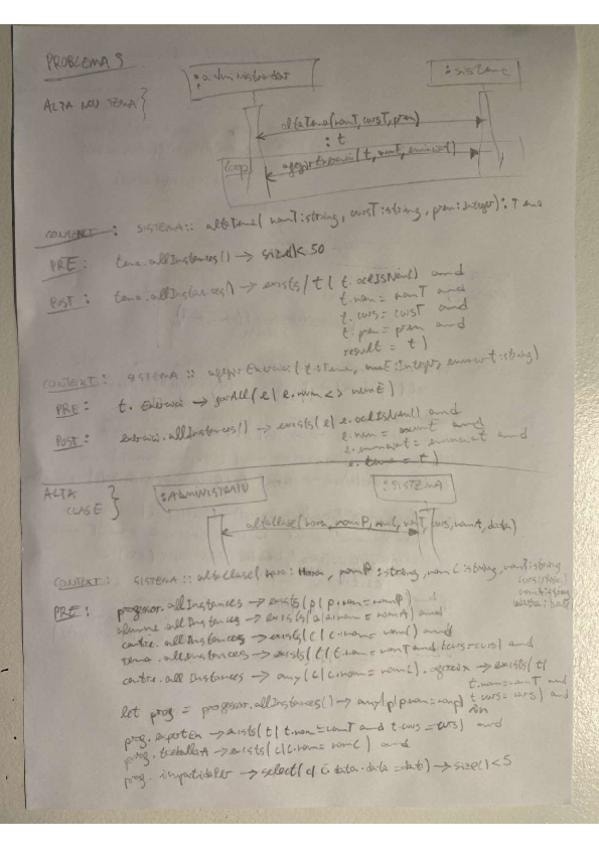 PROBLEMA 9
:administrador
:sistema
ALTA NOU TEMA}
altaTema(nomT, cursT, prem)
: t
loop
afegirExercici(t, numE, enunciat)
CONTEXT: SISTEMA:: altaTema( nomT:string, cursT:string, prem:Integer): Tema
PRE: tema.allInstances() -> size()<50
POST: tema.allInstances() -> exists( t | t.oclIsNew() and
t.nom = nomT and
t.curs = cursT and
t.prem = prem and
result = t)
CONTEXT: SISTEMA :: afegirExercici( t:Tema, numE:Integer, enunciat:string)
PRE: t. Exercici -> forAll( e | e.num <> numE)
POST: exercici.allInstances() -> exists( e | e.oclIsNew() and
e.num = numE and
e.enunciat = enunciat and
e. tema = t)
ALTA CLASE}
:ADMINISTRADO
:SISTEMA
altaClase(hora, nomP, nomC, nomT, curs, nomA, data)
CONTEXT: SISTEMA :: altaClase( hora: Hora, nomP:string, nomC:string, nomT:string
PRE: professor.allInstances -> exists( p | p.nom = nomP) and
alumne.allInstances -> exists( a | a.nom = nomA) and
centre.allInstances -> exists( c | c.nom = nomC) and
tema.allInstances -> exists( t | t.nom = nomT and t.curs = curs) and
centre.allInstances -> any( c | c.nom = nomC). ofereix -> exists( t |
t.nom = nomT and
t.curs = curs) and
let prof = professor.allInstances() -> any( p | p.nom = nomP) in
prof.expertEn -> exists( t | t.nom = nomT and t.curs = curs) and
prof.treballaA -> exists( c | c.nom = nomC) and
prof. impartidaPer -> select( c | c.data.data = data) -> size() < 5